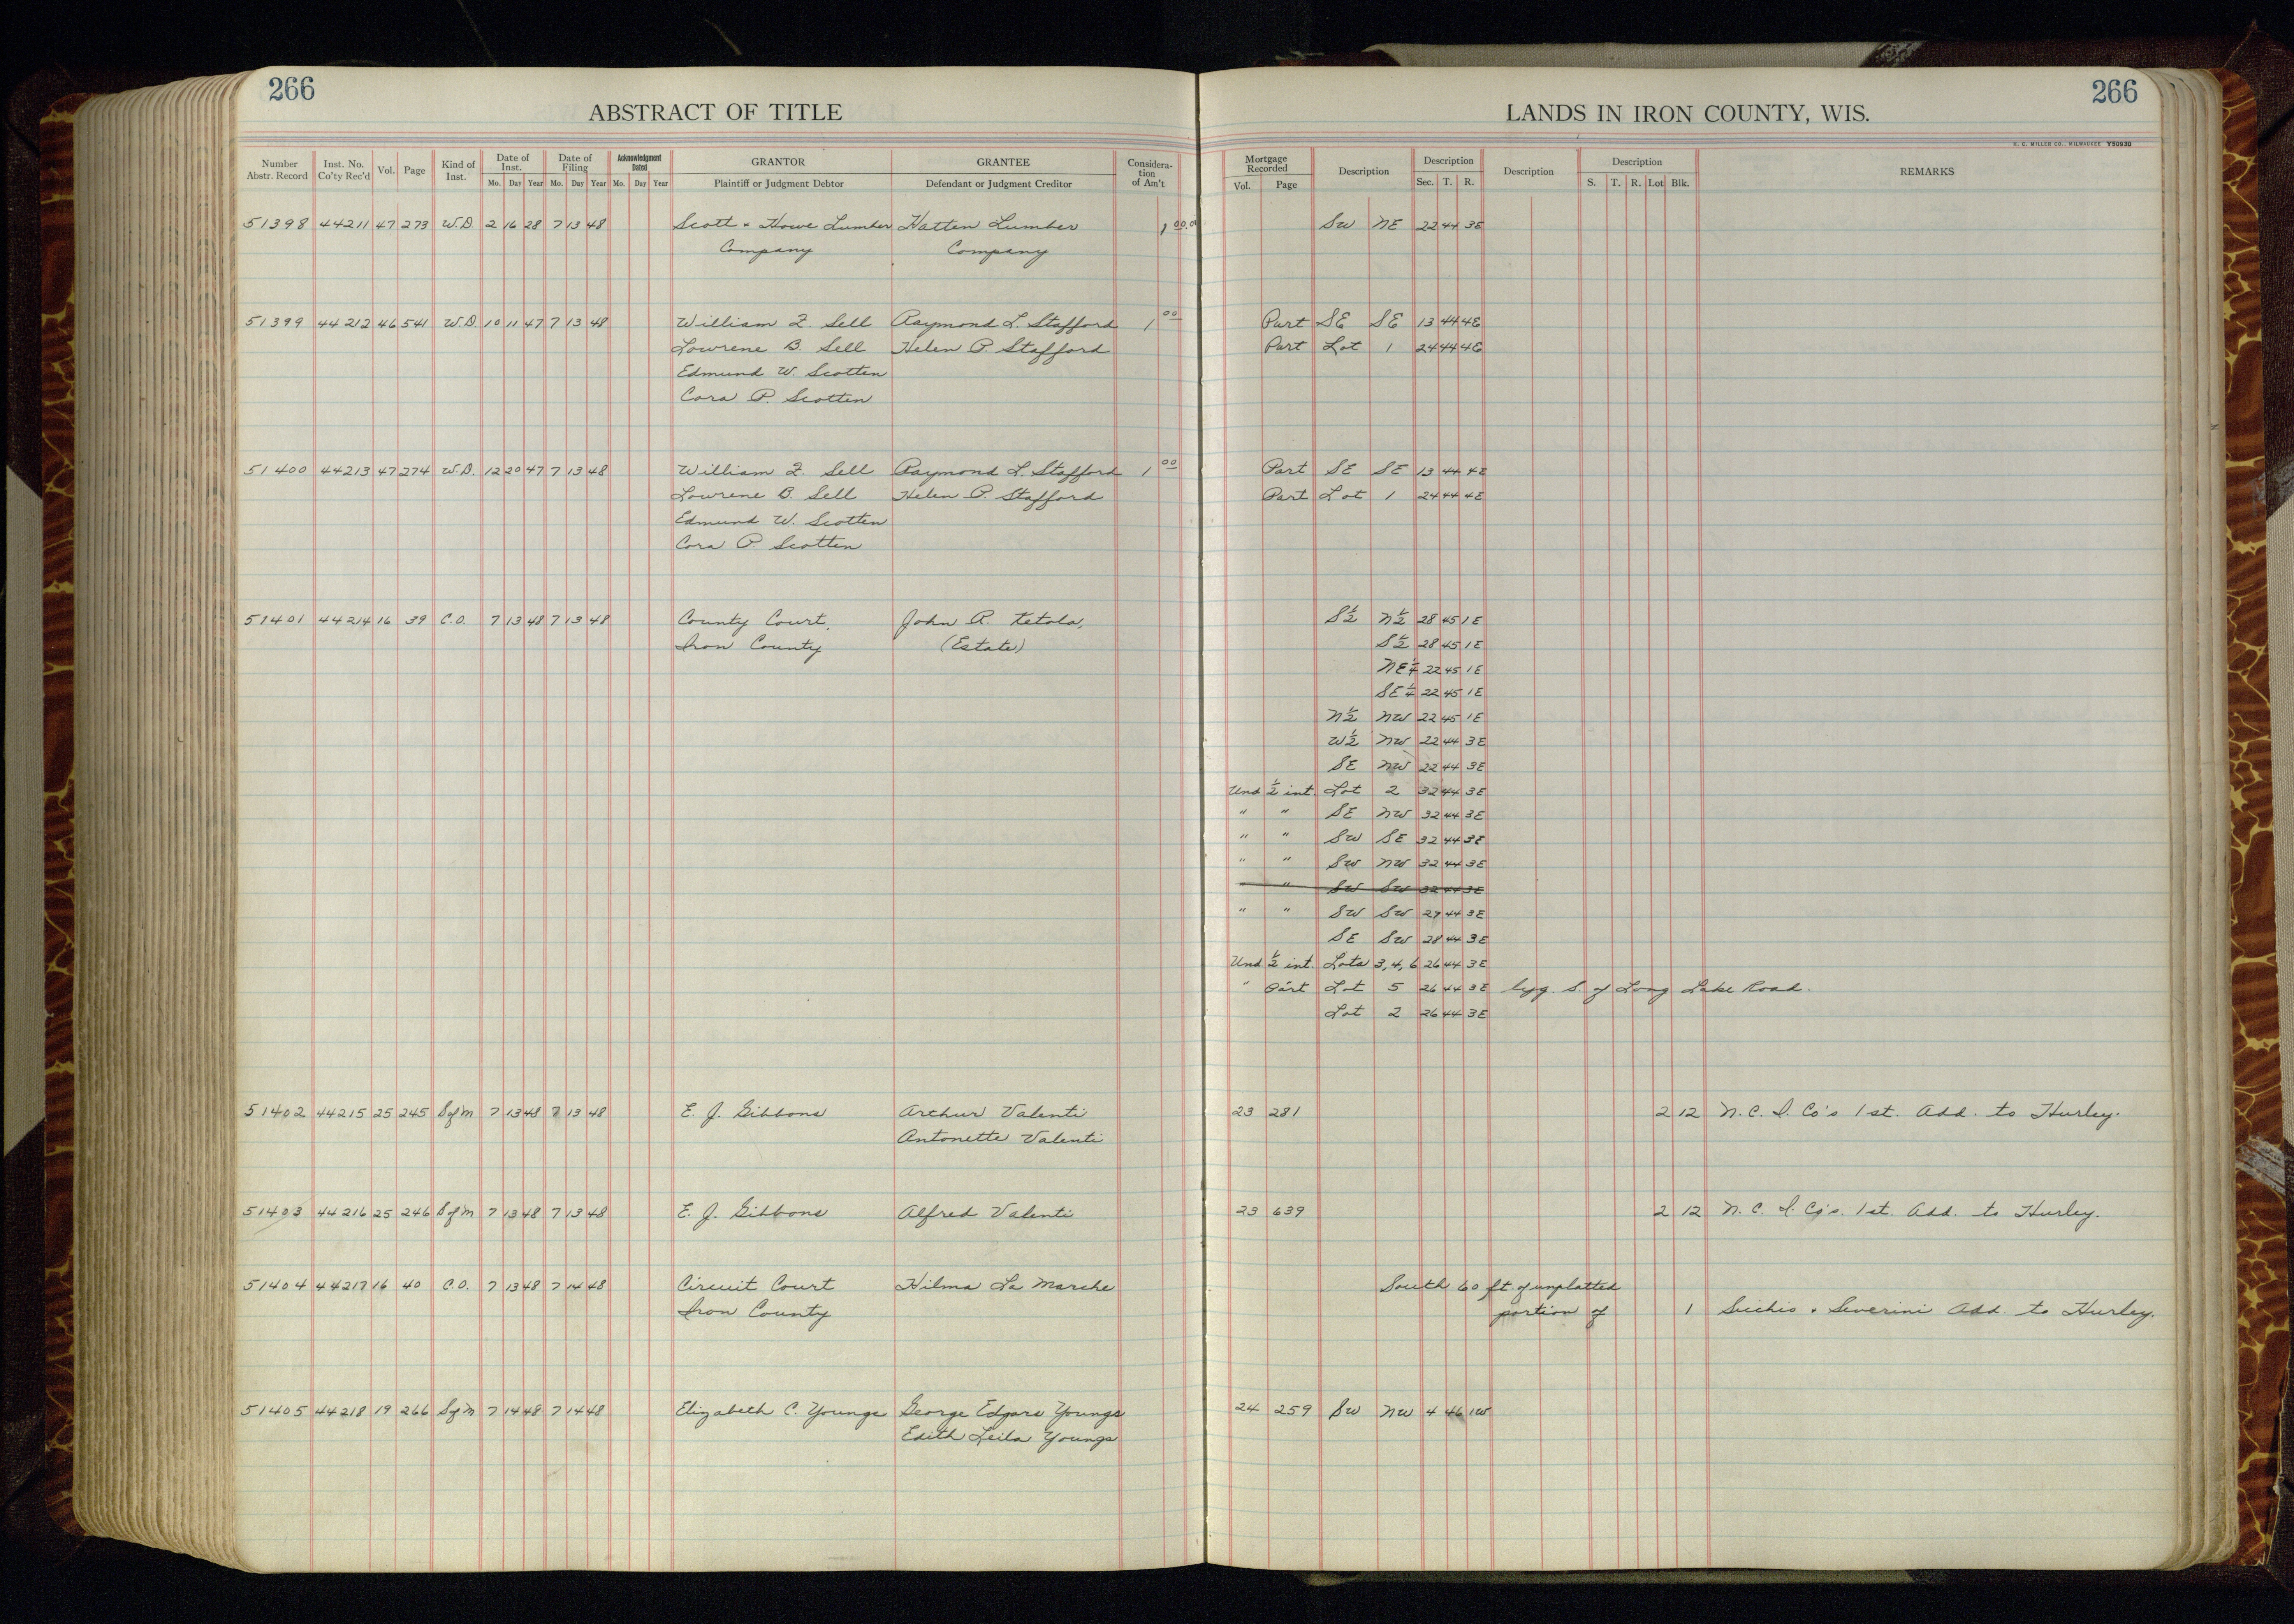 266
ABSTRACT OF TITLE
Number Abstr. Record | Inst. No. Co'ty Rec'd | Vol. | Page | Kind of Inst. | Date of Inst. Mo. Day Year | Date of Filing Mo. Day Year | Acknowledgment Dated Mo. Day Year | GRANTOR Plaintiff or Judgment Debtor | GRANTEE Defendant or Judgment Creditor | Considera-tion of Am't
51398 44211 47 273 W.D. 2 16 28 7 13 48 Scott & Howe Lumber Hatten Lumber 1 00
Company Company
51399 44212 46 541 W.D. 10 11 47 7 13 48 William Z. Sell Raymond L. Stafford 1 00
Lowrene B. Sell Helen P. Stafford
Edmund W. Scotten
Cora P. Scotten
51400 44213 47 274 W.D. 12 20 47 7 13 48 William Z. Sell Raymond L. Stafford 1 00
Lowrene B. Sell Helen P. Stafford
Edmund W. Scotten
Cora P. Scotten
51401 44214 16 39 C.O. 7 13 48 7 13 48 County Court, John A. Ketola,
Iron County (Estate)
51402 44215 25 245 S of M 7 13 48 7 13 48 E. J. Gibbons Arthur Valenti
Antonette Valenti
51403 44216 25 246 S of M 7 13 48 7 13 48 E. J. Gibbons Alfred Valenti
51404 44217 16 40 C.O. 7 13 48 7 14 48 Circuit Court Hilma La Marche
Iron County
51405 44218 19 266 S of M 7 14 48 7 14 48 Elizabeth C. Youngs George Edgars Youngs
Edith Leila Youngs
266
LANDS IN IRON COUNTY, WIS.
H. C. MILLER CO., MILWAUKEE Y50930
Mortgage Recorded Vol. Page | Description | Description Sec. T. R. | Description | Description S. T. R. Lot Blk. | REMARKS
SW NE 22 44 3E
Part SE SE 13 44 4E
Part Lot 1 24 44 4E
Part SE SE 13 44 4E
Part Lot 1 24 44 4E
S½ N½ 28 45 1E
S½ 28 45 1E
NE¼ 22 45 1E
SE¼ 22 45 1E
N½ NW 22 45 1E
W½ NW 22 44 3E
SE NW 22 44 3E
Und ½ int. Lot 2 32 44 3E
" " SE NW 32 44 3E
" " SW SE 32 44 3E
" " SW NW 32 44 3E
" " SW SW 32 44 3E
" " SW SW 27 44 3E
SE SW 28 44 3E
Und ½ int. Lots 3, 4, 6 26 44 3E
" Part Lot 5 26 44 3E lyg. S. of Long Lake Road.
Lot 2 26 44 3E
23 281 2 12 N. C. I. Co's 1st. Add. to Hurley.
23 639 2 12 N. C. I. Co's. 1st. Add. to Hurley.
South 60 ft. of unplatted
portion of 1 & Severini Add. to Hurley.
24 259 SW NW 4 46 1W